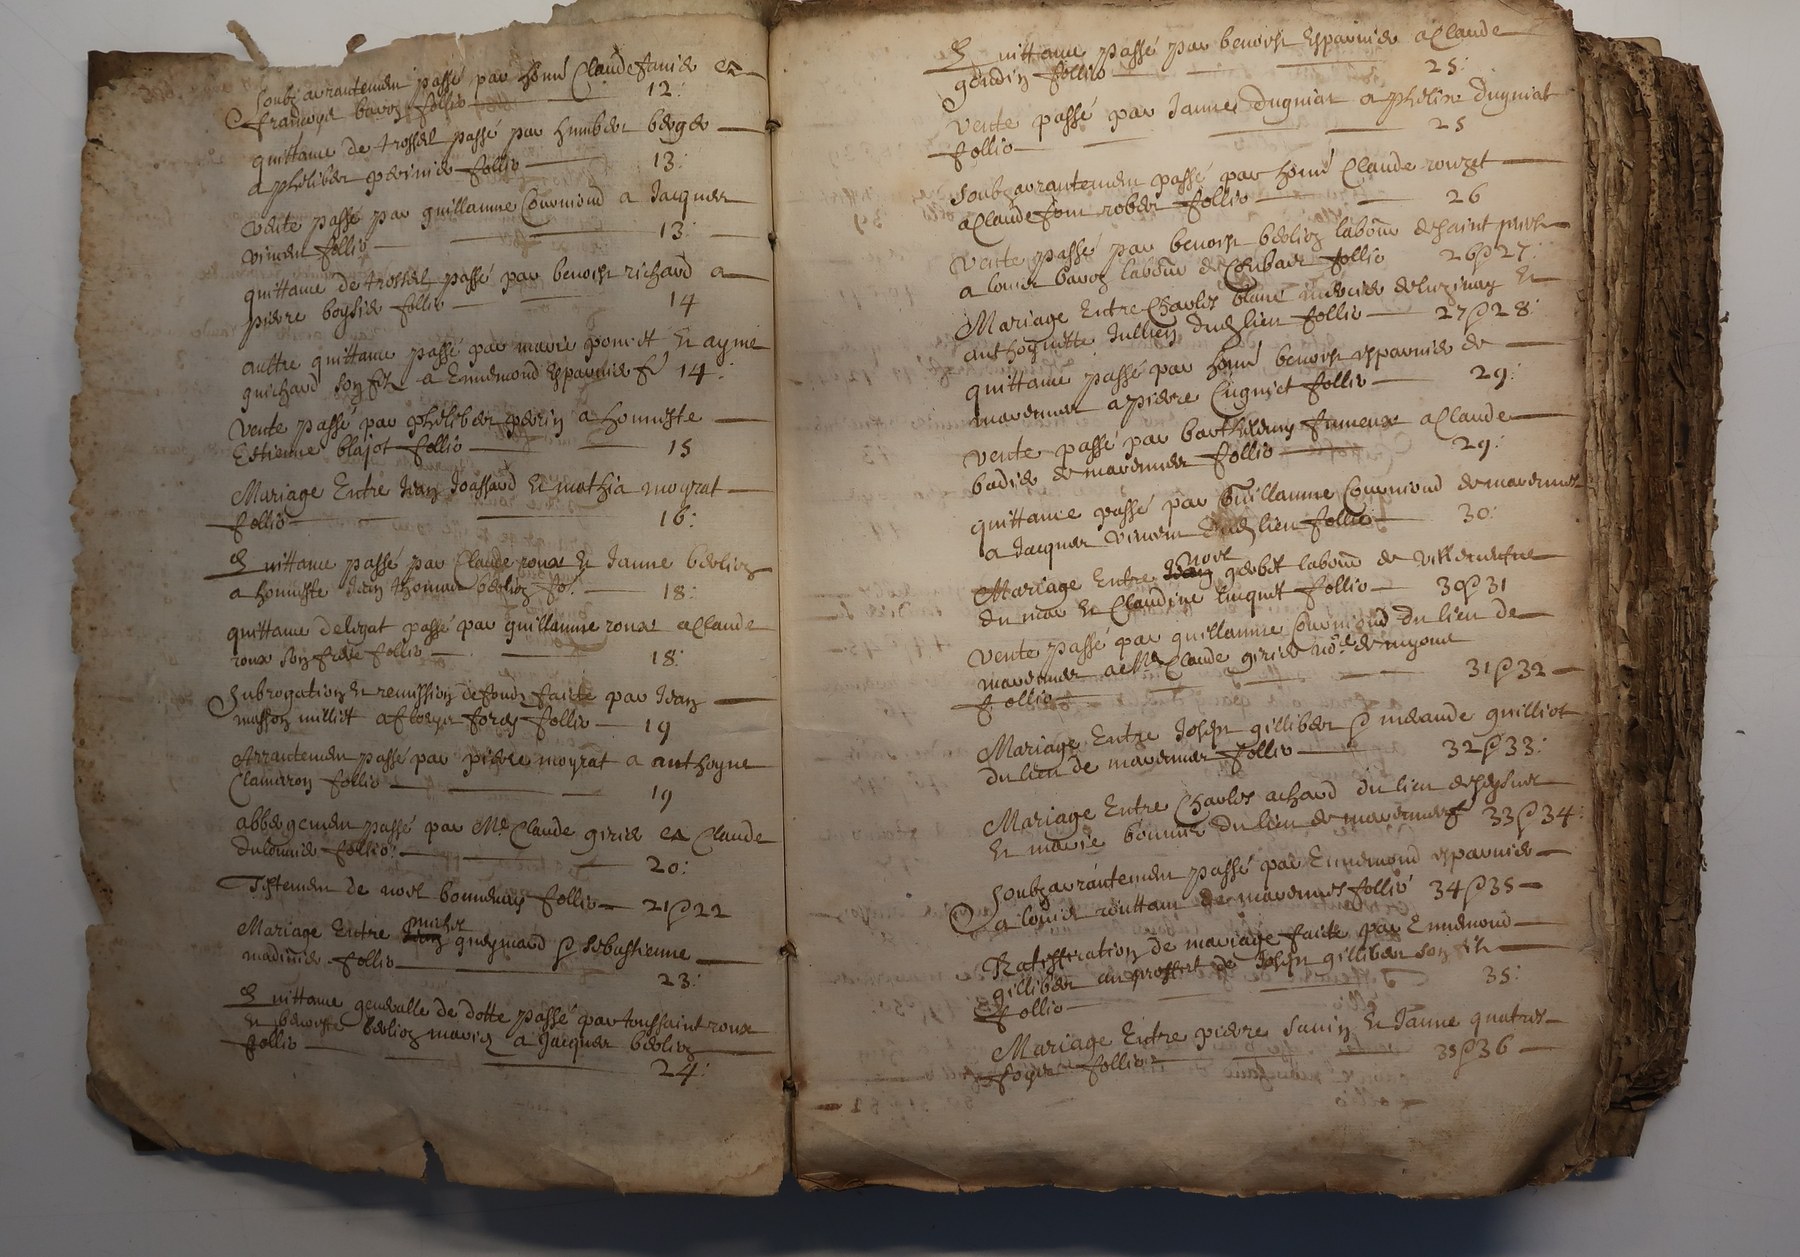 Soubzarrantemen passé par honné Claude Janier et
françoys baroz follio 12:
quittance de trossel passé par humber berger
a pheliber perinier follio 13:
vente passé par guillaume Courmond a Jacques
vincen follio 13:
quittance de trossel passé par benoist richard a
pierre follio 14
auttre quittance passé par marie poncet et ayme
guichard son filz a Ennemond esparnier fo 14:
vente passé par pheliber perrin a honneste
Estienne blajot follio 15
Mariage Entre Jean Joassard et mathia moyrat
follio 16:
Quittance passé par Claude roux et Janne berlioz
a honneste Jean thomas berlioz fo: 18:
quittance de legat passé par guillaume roux a Claude
roux son frere follio 18:
Subrogation et remission de fondz faicte par Jean
masson follio 19
Arrantemen passé par pierre moyrat a anthoyne
Clamaron follio 19
abbergemen passé par Me Claude girier et Claude
follio: 20:
Testemen de noel follio 21 & 22
michel
Mariage Entre Jean gueymard & sebastienne
follio 23:
Quittance generalle de dotte passé par toussaint roux
et benoiste berlioz mariez a Jacques berlioz
follio 24:
Quittance passé par benoist esparnier a Claude
follio 25:
vente passé par Janne dugniat a phelixe dugniat
follio 25
Soubzarrantemen passé par honné Claude rouzet
a Claude rober follio 26
vente passé par benoist berlioz labour de saint
a louis baroz labour de follio 26 & 27:
Mariage Entre Charles blanc mercier de luzinay et
anthoynette Jullien dud lieu follio 27 & 28:
quittance passé par honné benoist esparnier de
marennes a pierre Cugniet follio 29:
vente passé par barthelemy a Claude
badier de marennes follio 29:
quittance passé par Guillaume Courmond de marennes
a Jacques vincen dud lieu follio 30:
noel
Mariage Entre Jean gerbet labour de villeneufve
du mar et Claudine follio 30 & 31
vente passé par guillaume Courmond du lieu de
marennes a Me Claude girier nore de myons
follio 31 & 32
Mariage Entre Joseph gilliber & meraude guilliot
du lieu de marennes follio 32 & 33:
Mariage Entre Charles achard du lieu de
et marie bonnier du lieu de marennes f 33 & 34:
Soubzarrantemen passé par Ennemond esparnier
a de marennes follio 34 & 35
Ratiffication de mariage faicte par Ennemond
gilliber au proffict de Joseph gilliber son filz
follio 35:
Mariage Entre pierre Janin et Janne
follio 35 & 36